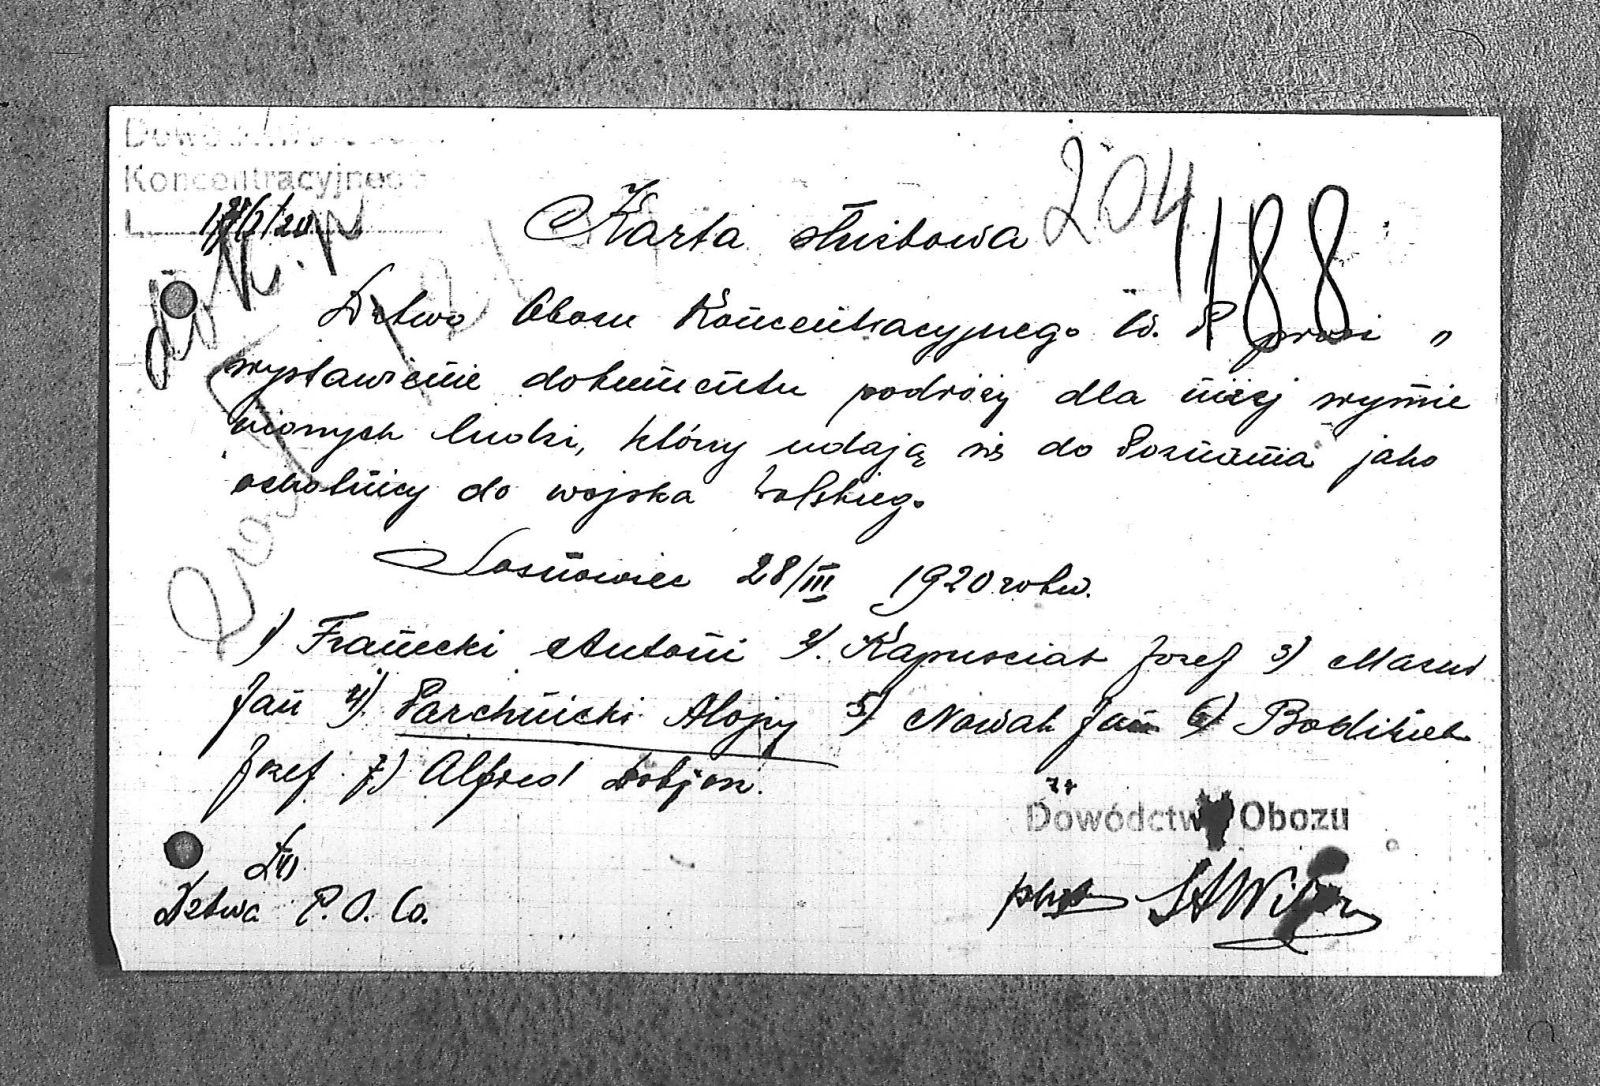 Dowództwo
Koncentracyjnego
L.
204
188
Karta służbowa
Dztwo Obozu Koncentracyjnego W. P prosi o
wystawienie dokumentu podróży dla niżej wymie
nionych ludzi, którzy udają się do Poznania jako
ochotnicy do wojska Polskiego
Sosnowiec 28/III 1920 roku.
1) Franecki Antoni 2). Kapuściak Józef 3) Mazur
Jan 4) Parchnicki Alojzy 5) Nowak Jan 6)
Józef 7) Alfred
Dowództwo Obozu
Dztwa P. O.